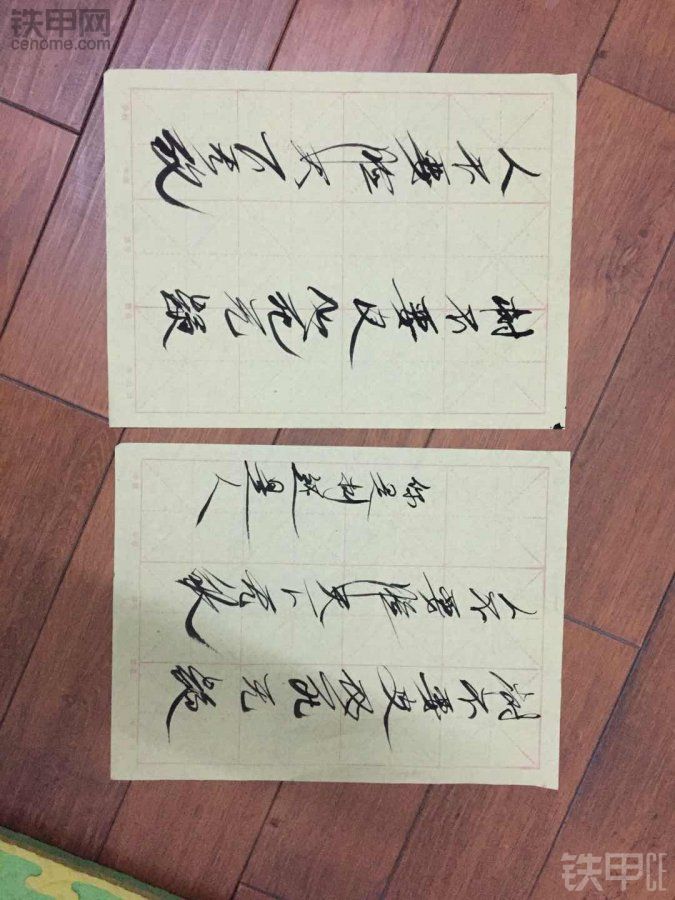 铁甲网
cehome.com
树不要皮必死无疑
人不要脸天下无敌
树不要皮必死无疑
人不要脸天下无敌
你是树还是人
铁甲CE